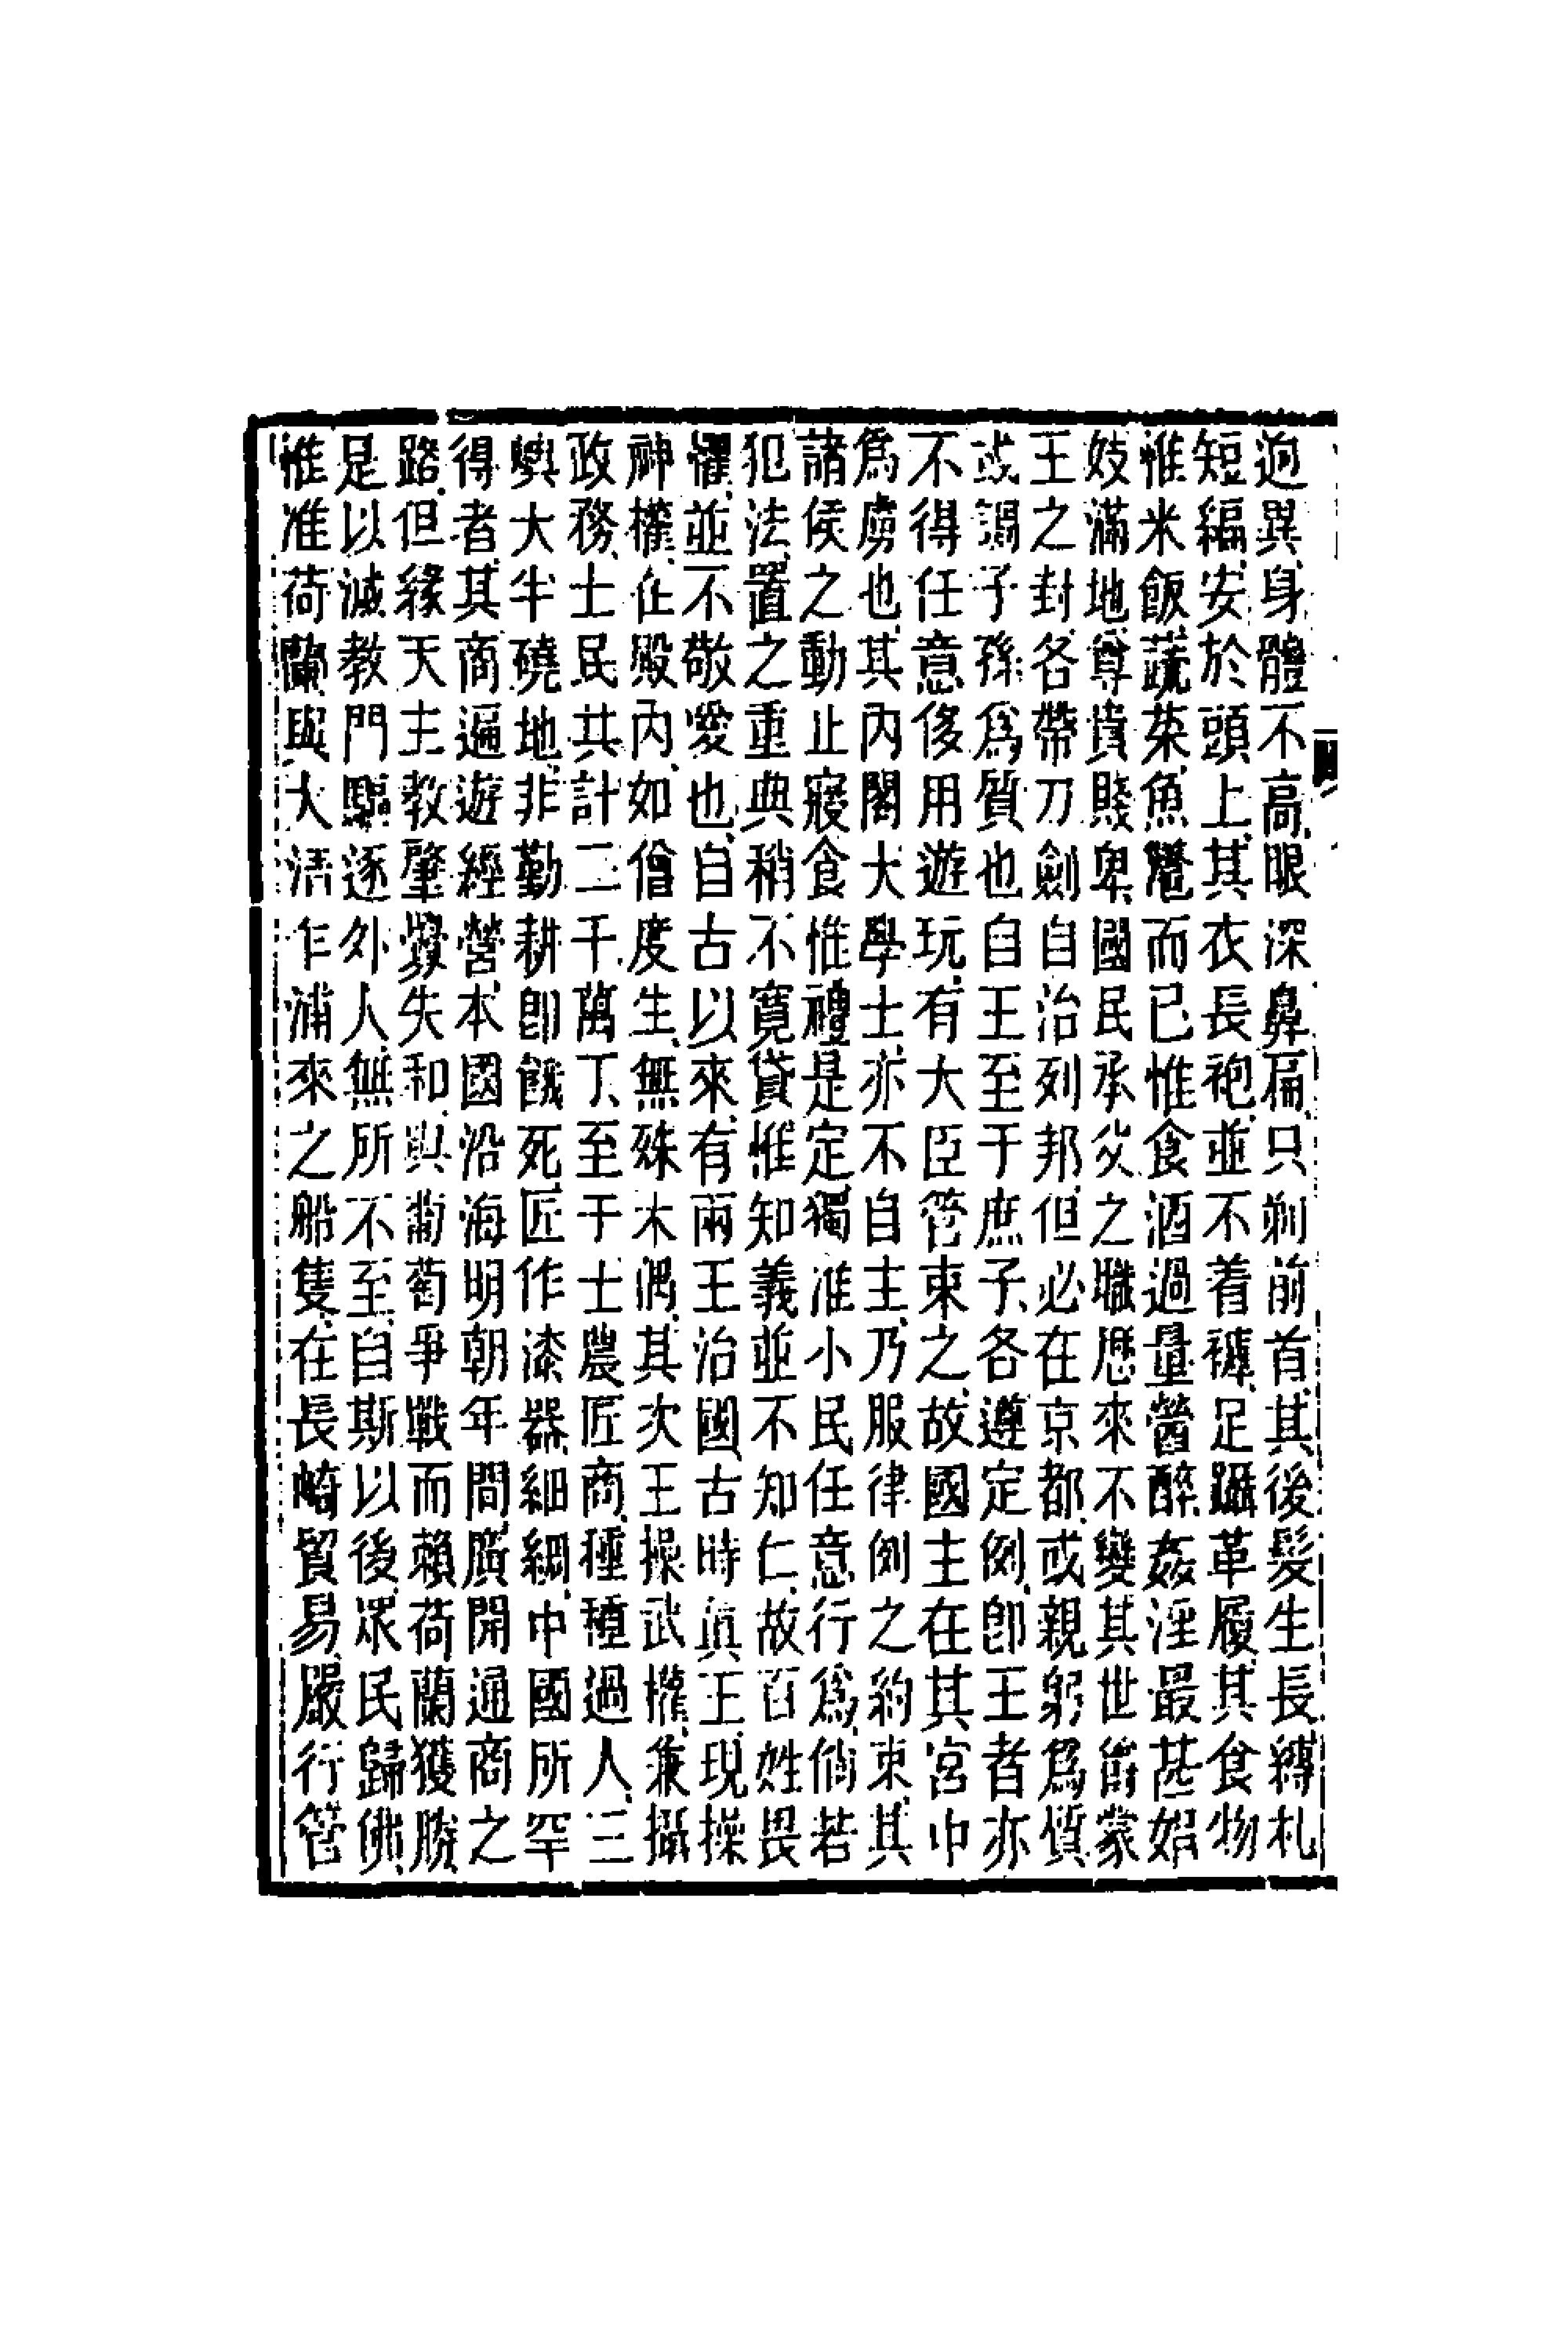 迥異、身體不高、眼深鼻扁、只剃前首、其後髮生長縛札
短緇、安於頭上、其衣長袍、並不着褲、足躡革履、其食物
惟米飯、蔬菜、魚鱉而已、惟食酒過量醟醉、姦淫最甚、娼
妓滿地、尊貴賤卑、國民承父之職、歷來不變、其世爵蒙
王之封、各帶刀劍、自治列邦、但必在京都、或親躬爲質
或謁子孫爲質也、自王至于庶子、各遵定例、卽王者亦
不得任意侈用遊玩、有大臣管束之、故國主在其宮中
爲虜也、其內閣大學士亦不自主、乃服律例之約束、其
諸侯之動止寢食、惟禮是定、獨准小民任意行爲、倘若
犯法、置之重典、稍不寬貸、惟知義、並不知仁、故百姓畏
懼、並不敬愛也、自古以來、有兩王治國、古時眞王、現操
神權、在殿內、如僧度生、無殊木偶、其次王操武權、兼攝
政務、士民共計二千萬丁、至于士農匠商、種種過人、三
輿大半磽地、非勤耕卽餓死、匠作漆器、細綢、中國所罕
得者、其商遍遊經營、本國沿海、明朝年間、廣開通商之
路、但緣天主教肇釁失和、與葡萄爭戰、而賴荷蘭獲勝
是以滅教門、驅逐外人、無所不至、自斯以後、眾民歸佛、
惟准荷蘭與大清乍浦來之船隻、在長崎貿易、嚴行管